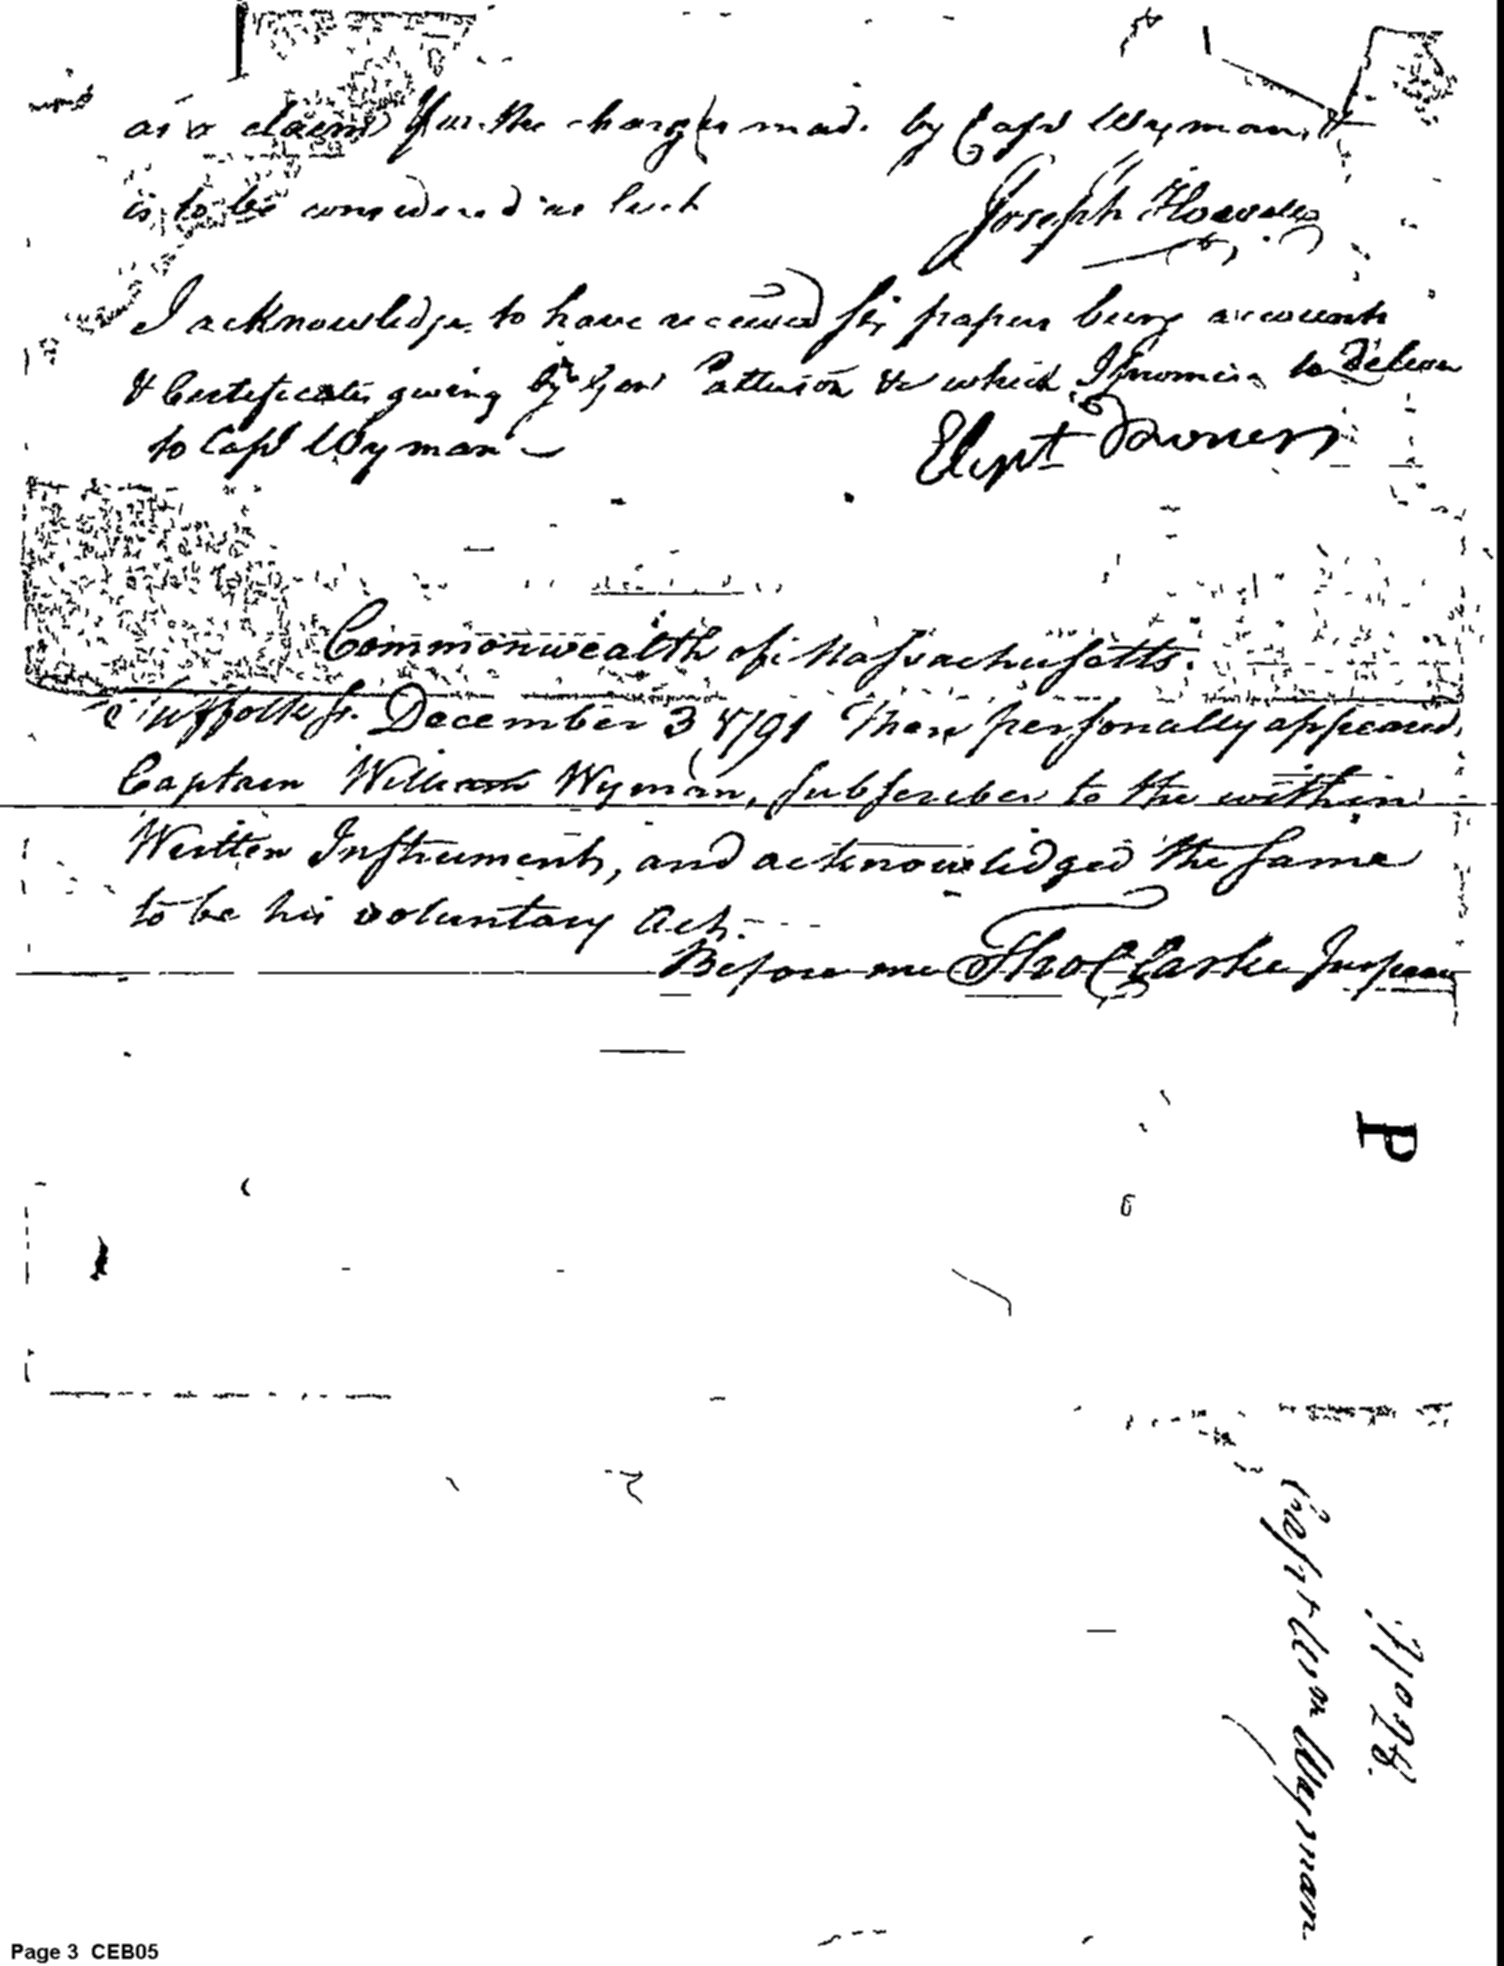 as a claim for the charges made by Capt Wyman, &
is to be considered as such
Joseph Howell
I acknowledge to have received six papers being accounts
& Certificates giving by Genl Patterson &c which I promise to deliver
to Capt Wyman
Elipt Downer
Commonwealth of Massachusetts.
Suffolk ss. December 3 1791 Then personally appeared,
Captain William Wyman, subscriber to the within
Written Instrument, and acknowledged the same
to be his voluntary Act.
Before me Tho Clarke Jus peace
P
Capt Wm Wyman
Page 3 CEB05